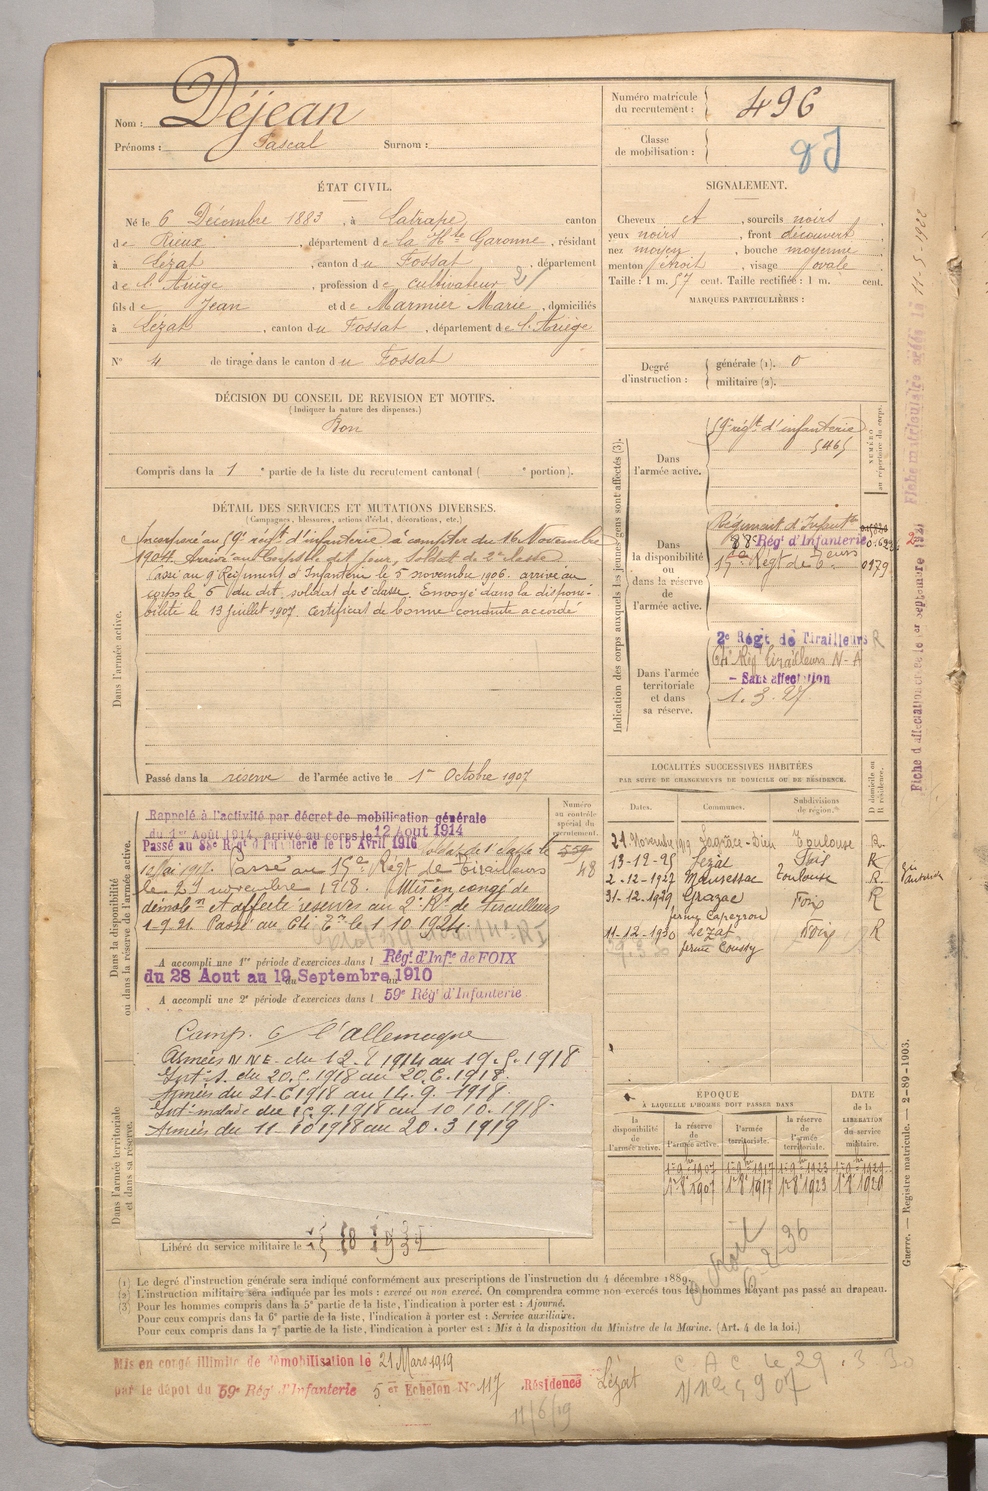 Nom : Déjean
Prénoms : Pascal Surnom :
Numéro matricule du recrutement : 496
Classe de mobilisation :
ÉTAT CIVIL.
Né le 6 Décembre 1883, à Latrape, canton
de Rieux, département de la Hte Garonne, résidant
à Lézat, canton du Fossat, département
de l'Ariège, profession de cultivateur
fils de Jean et de Marmier Marie, domiciliés
à Lézat, canton du Fossat, département de l'Ariège
N° 4 de tirage dans le canton du Fossat
SIGNALEMENT.
Cheveux , sourcils noirs
yeux noirs, front découvert
nez moyen, bouche moyenne
menton étroit, visage ovale
Taille : 1 m. 57 cent. Taille rectifiée : 1 m. cent.
MARQUES PARTICULIÈRES :
Degré d'instruction : générale (1). 0
militaire (2).
DÉCISION DU CONSEIL DE REVISION ET MOTIFS.
(Indiquer la nature des dispenses.)
Bon
Compris dans la 1e partie de la liste du recrutement cantonal ( e portion).
DÉTAIL DES SERVICES ET MUTATIONS DIVERSES.
(Campagnes, blessures, actions d'éclat, décorations, etc.)
Dans l'armée active.
Incorporé au 59e régt d'infanterie à compter du 16 Novembre
1904. Arrivé au corps le dit jour, soldat de 2e classe.
Passé au 9e Régiment d'Infanterie le 5 novembre 1906. arrivé au
corps le 6 du dit. soldat de 2e classe. Envoyé dans la disponi-
bilité le 13 juillet 1907. certificat de bonne conduite accordé
Passé dans la réserve de l'armée active le 1er Octobre 1907
Indication des corps auxquels les jeunes gens sont affectés (3).
NUMÉRO au répertoire du corps.
Dans l'armée active.
59e régt d'infanterie
5465
Dans la disponibilité ou dans la réserve de l'armée active.
Régiment d'Infantie
88e Rég' d'Infanterie
15e Régt de
0179
Dans l'armée territoriale et dans sa réserve.
2e Régt de Tirailleurs R
Rég Tirailleurs N-A
- Sans affectation
1.3.27
LOCALITÉS SUCCESSIVES HABITÉES
PAR SUITE DE CHANGEMENTS DE DOMICILE OU DE RÉSIDENCE.
Dates. Communes. Subdivisions de région. D domicile ou R résidence.
21 Novembre 1919 Lagrâce-Dieu Toulouse R
13-12-25 Lézat Foix R
2-12-1922 Mauressac Toulouse R
31-12-1929 Grazac Foix R
ferme Capeyron
11-12-1930 Lézat Foix R
ferme Coussy
Dans la disponibilité ou dans la réserve de l'armée active.
Numéro au contrôle spécial du recrutement.
Rappelé à l'activité par décret de mobilisation générale
du 1er Août 1914, arrivé au corps le 12 Aout 1914
Passé au 88e Rég' d'Infanterie le 15 Avril 1916 Soldat de 1e classe le
12 Mai 1917. Passé au 15e Régt de Tirailleurs
le 21 novembre 1918. Mis en congé de
démobn et affecté réserves au 2e Rt de tirailleurs
1-9-21. Passé au le 1.10.1924.
48
A accompli une 1re période d'exercices dans l Rég' d'Infie de FOIX
du 28 Aout au 19 Septembre 1910
A accompli une 2e période d'exercices dans l 59e Rég' d'Infanterie
Dans l'armée territoriale et dans sa réserve.
Camp. c/ l'allemagne
Armées N N E. du 12.8.1914 au 19.5.1918
Int-S. du 20.5.1918 au 20.6.1918.
Armées du 21-6 1918 au 14.9.1918.
Int malade du 15.9.1918 au 10.10.1918.
Armées du 11.10 1918 au 20.3 1919
Libéré du service militaire le
ÉPOQUE
À LAQUELLE L'HOMME DOIT PASSER DANS
la disponibilité de l'armée active.
la réserve de l'armée active.
l'armée territoriale.
la réserve de l'armée territoriale.
DATE de la LIBÉRATION du service militaire.
(1) Le degré d'instruction générale sera indiqué conformément aux prescriptions de l'instruction du 4 décembre 1889.
(2) L'instruction militaire sera indiquée par les mots : exercé ou non exercé. On comprendra comme non exercés tous les hommes n'ayant pas passé au drapeau.
(3) Pour les hommes compris dans la 5e partie de la liste, l'indication à porter est : Ajourné.
Pour ceux compris dans la 6e partie de la liste, l'indication à porter est : Service auxiliaire.
Pour ceux compris dans la 7e partie de la liste, l'indication à porter est : Mis à la disposition du Ministre de la Marine. (Art. 4 de la loi.)
Guerre. — Registre matricule. — 2-89-1903.
Mis en congé illimité de démobilisation le 21 Mars 1919
par le dépot du 59e Rég' d'Infanterie 5 er Echelon N° 117 Résidence Lézat
11/6/19
C A C le 29.3 30